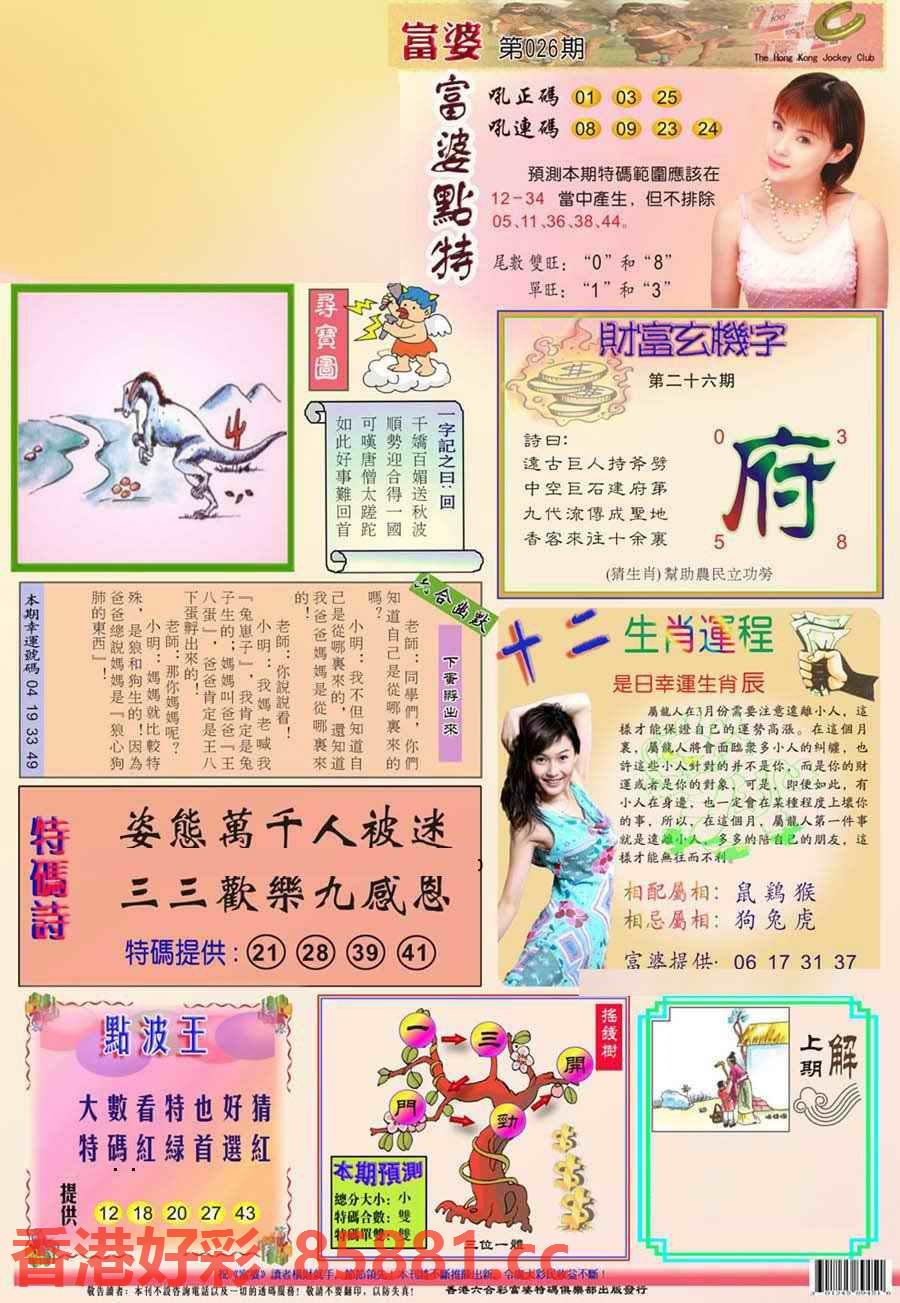 富婆 第026期
The Hong Kong Jockey Club
富婆點特
吼正碼 01 03 25
吼連碼 08 09 23 24
預測本期特碼範圍應該在
12－34 當中產生，但不排除
05、11、36、38、44。
尾數雙旺：“0”和“8”
單旺：“1”和“3”
尋寶圖
一字記之曰：回
千嬌百媚送秋波
順勢迎合得一國
可嘆唐僧太蹉跎
如此好事難回首
財富玄機字
第二十六期
詩曰：
遠古巨人持斧劈
中空巨石建府第
九代流傳成聖地
香客來往十余裏
0 3
府
5 8
(猜生肖)幫助農民立功勞
六合幽默
下蛋孵出來
老師：同學們，你們
知道自己是從哪裏來的
嗎？
小明：我不但知道自
己是從哪裏來的，還知道
我爸爸媽媽是從哪裏來
的！
老師：你說說看！
小明：我媽老喊我
『兔崽子』，我肯定是兔
子生的，媽媽叫爸爸『王
八蛋』，爸爸肯定是王八
下蛋孵出來的！
老師：那你媽媽呢？
小明：媽媽就比較特
殊，是狼和狗生的！因為
爸爸總說媽媽是『狼心狗
肺的東西』！
本期幸運號碼 04 19 33 49
十二生肖運程
是日幸運生肖辰
屬龍人在3月份需要注意遠離小人，這
樣才能保證自己的運勢高漲。在這個月
裏，屬龍人將會面臨衆多小人的糾纏，也
許這些小人針對的并不是你，而是你的財
運或者是你的對象，可是，即便如此，有
小人在身邊，也一定會在某種程度上壞你
的事，所以，在這個月，屬龍人第一件事
就是遠離小人，多多的陪自己的朋友，這
樣才能無往而不利。
相配屬相：鼠 鷄 猴
相忌屬相：狗 兔 虎
富婆提供：06 17 31 37
特碼詩
姿態萬千人被迷
三三歡樂九感恩
特碼提供：21 28 39 41
點波王
大數看特也好猜
特碼紅綠首選紅
提供 12 18 20 27 43
搖錢樹
一 三 開
門 勁
本期預測
總分大小：小
特碼合數：雙
特碼單雙：雙
三位一體
上期解
香港好彩 85881.cc
敬告讀者：本刊不設咨詢電話以及一切的透碼服務！敬請不要翻印，以防失真！
香港六合彩富婆特碼俱樂部出版發行